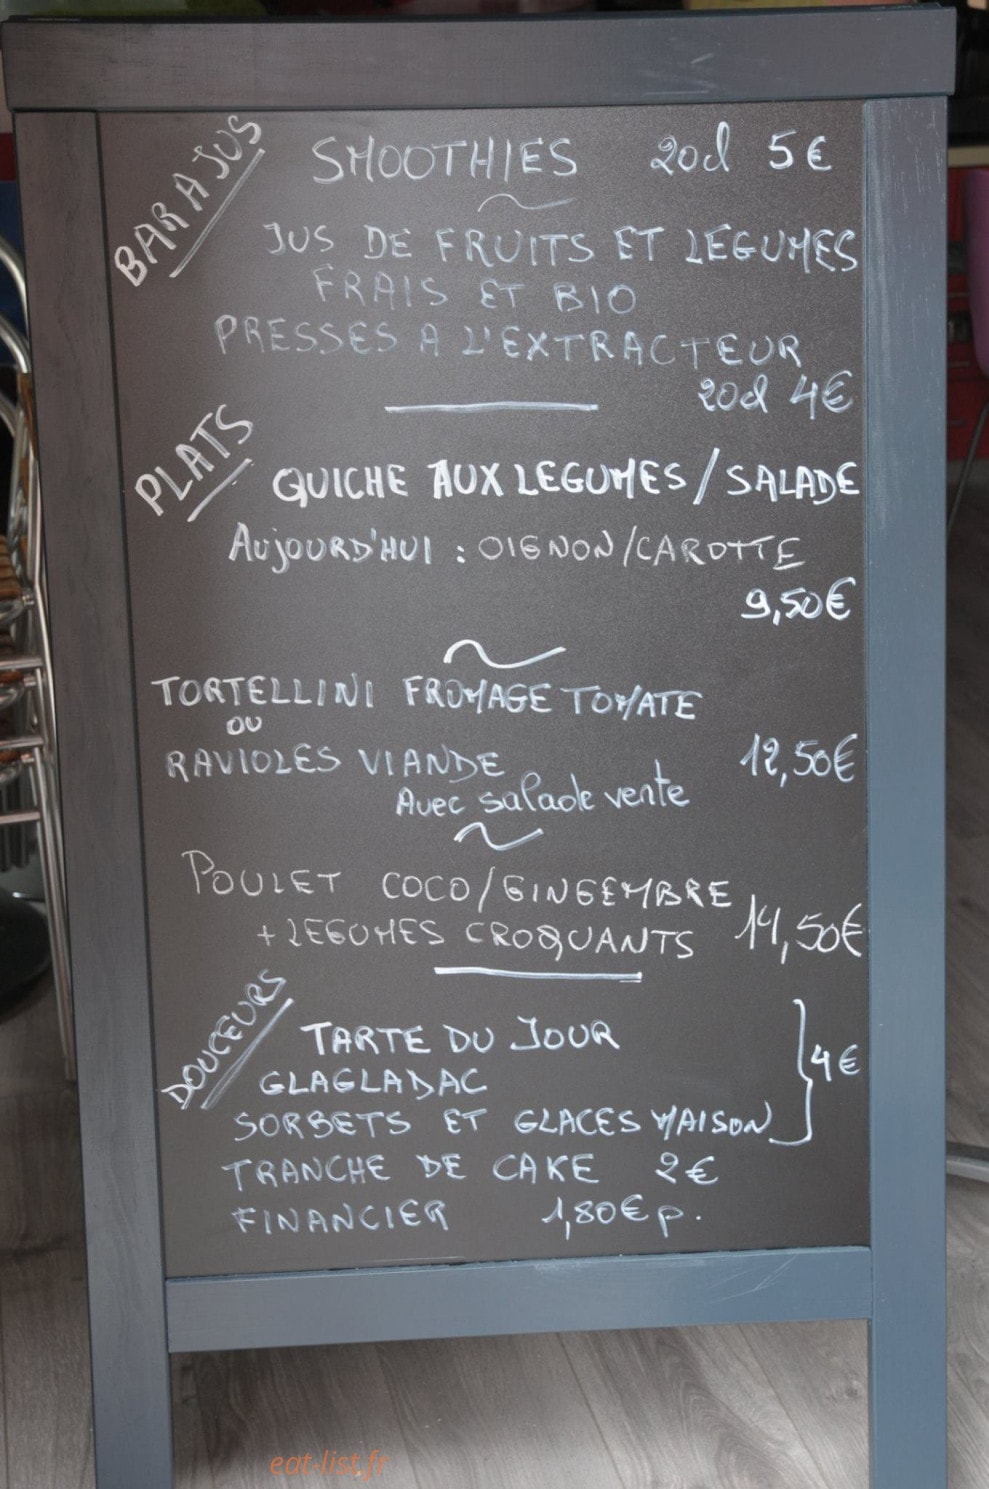 BAR A JUS
SMOOTHIES 20cl 5€
JUS DE FRUITS ET LEGUMES
FRAIS ET BIO
PRESSES A L'EXTRACTEUR
20cl 4€
PLATS
QUICHE AUX LEGUMES/SALADE
AUJOURD'HUI : OIGNON/CAROTTE
9,50€
TORTELLINI FROMAGE TOMATE
OU
RAVIOLES VIANDE 12,50€
Avec salade verte
POULET COCO/GINGEMBRE
+ LEGUMES CROQUANTS 14,50€
DOUCEURS
TARTE DU JOUR
GLAGLADAC 4€
SORBETS ET GLACES MAISON
TRANCHE DE CAKE 2€
FINANCIER 1,80€ p.
eat-list.fr